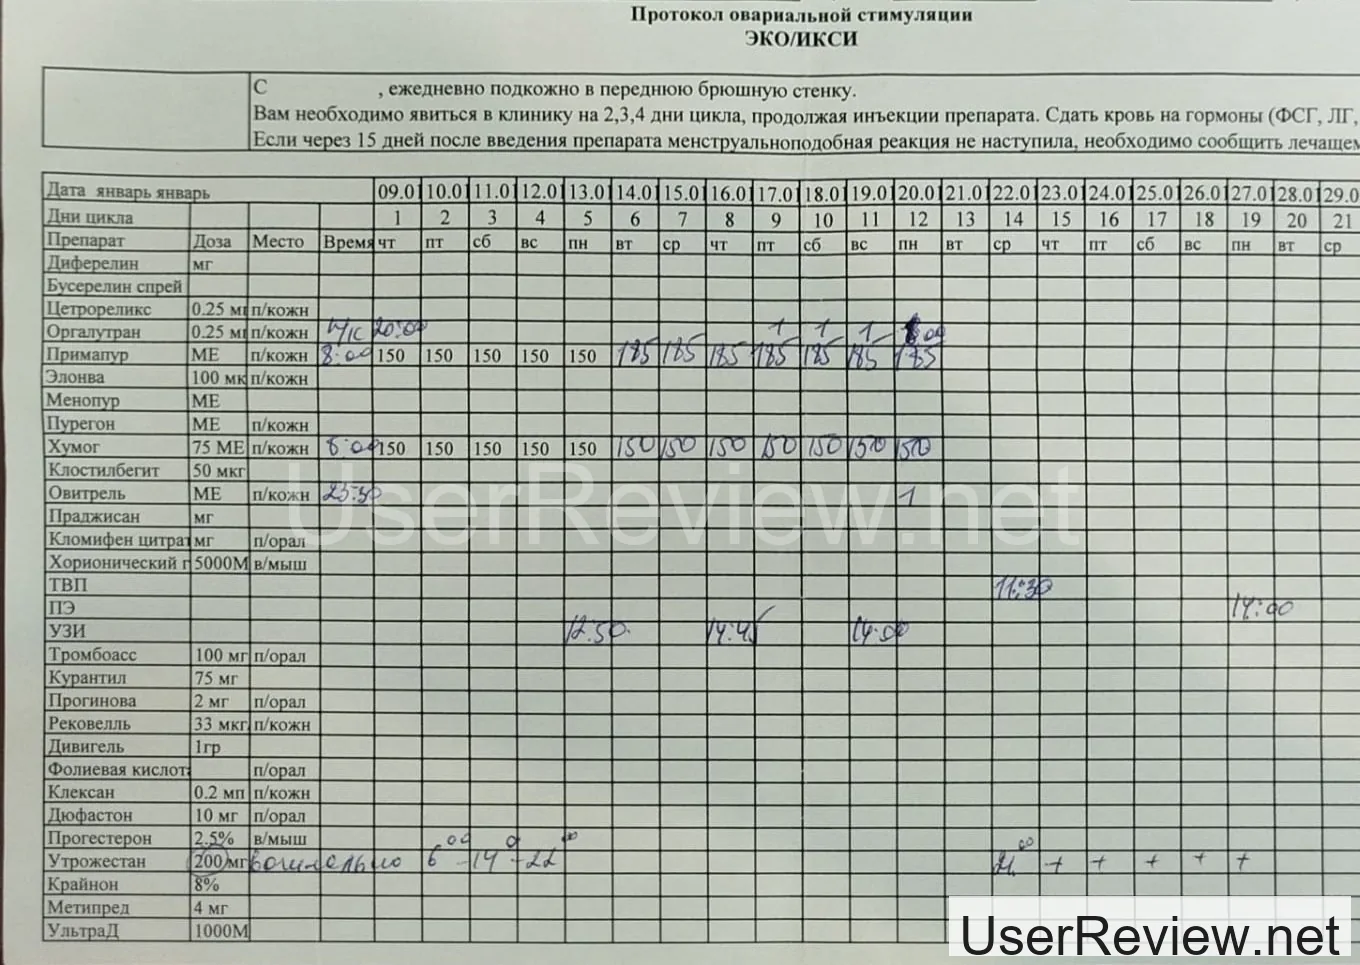 Протокол овариальной стимуляции
ЭКО/ИКСИ
С , ежедневно подкожно в переднюю брюшную стенку.
Вам необходимо явиться в клинику на 2,3,4 дни цикла, продолжая инъекции препарата. Сдать кровь на гормоны (ФСГ, ЛГ,
Если через 15 дней после введения препарата менструальноподобная реакция не наступила, необходимо сообщить лечащем
Дата январь январь 09.01 10.01 11.01 12.01 13.01 14.01 15.01 16.01 17.01 18.01 19.01 20.01 21.01 22.01 23.01 24.01 25.01 26.01 27.01 28.01 29.0
Дни цикла 1 2 3 4 5 6 7 8 9 10 11 12 13 14 15 16 17 18 19 20 21
Препарат Доза Место Время чт пт сб вс пн вт ср чт пт сб вс пн вт ср чт пт сб вс пн вт ср
Диферелин мг
Бусерелин спрей
Цетрореликс 0.25 мг п/кожн
Оргалутран 0.25 мг п/кожн п/к 20:00 1 1 1
Примапур МЕ п/кожн 8:00 150 150 150 150 150 185 185 185 185 185 185 185
Элонва 100 мк п/кожн
Менопур МЕ
Пурегон МЕ п/кожн
Хумог 75 МЕ п/кожн 8:00 150 150 150 150 150 150 150 150 150 150 150 150
Клостилбегит 50 мкг
Овитрель МЕ п/кожн 23:30 1
Праджисан мг
Кломифен цитрат мг п/орал
Хорионический г 5000М в/мыш
ТВП 11:30
ПЭ 14:00
УЗИ 12:50 14:45 14:00
Тромбоасс 100 мг п/орал
Курантил 75 мг
Прогинова 2 мг п/орал
Рековелль 33 мкг п/кожн
Дивигель 1гр
Фолиевая кислота п/орал
Клексан 0.2 мп п/кожн
Дюфастон 10 мг п/орал
Прогестерон 2.5% в/мыш
Утрожестан 200 мг вагинально 6 00 - 14 0 - 22 00 21 00 + + + + +
Крайнон 8%
Метипред 4 мг
УльтраД 1000М
UserReview.net
UserReview.net